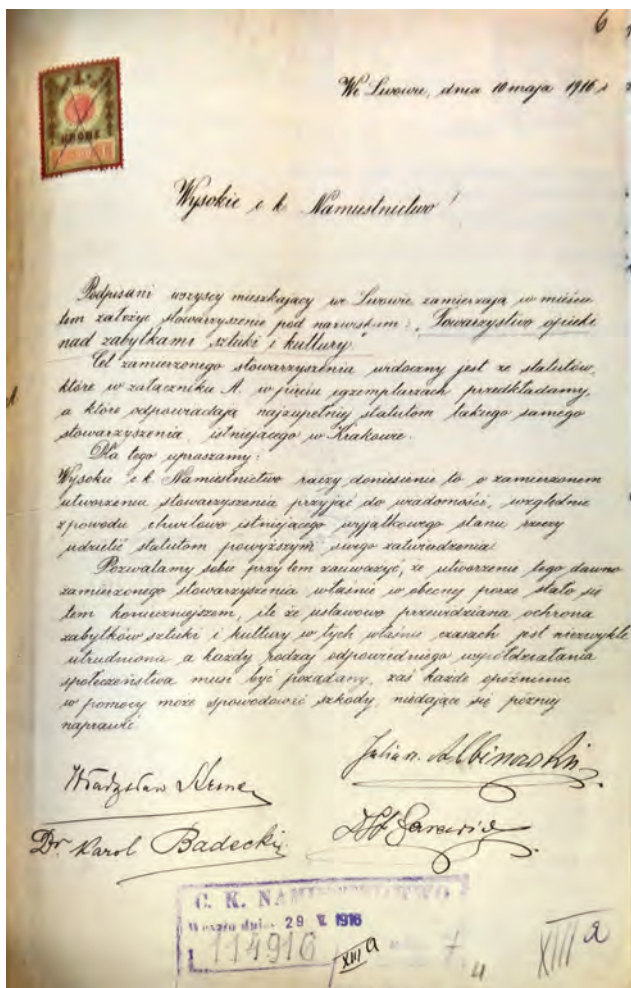 6
We Lwowie, dnia 10 maja 1916 r
KRONE
Wysokie c. k. Namiestnictwo!
Podpisani wszyscy mieszkający we Lwowie zamierzają w mieście
tem założyć stowarzyszenie pod nazwiskiem: „Towarzystwo opieki
nad zabytkami sztuki i kultury."
Cel zamierzonego stowarzyszenia widoczny jest ze statutów,
które w załączniku A. w pięciu egzemplarzach przedkładamy,
a które odpowiadają najzupełniej statutom takiego samego
stowarzyszenia, istniejącego w Krakowie.
Dla tego upraszamy:
Wysokie c. k. Namiestnictwo raczy doniesienie to o zamierzonem
utworzeniu stowarzyszenia przyjąć do wiadomości, względnie
z powodu chwilowo istniejącego wyjątkowego stanu rzeczy
udzielić statutom powyższym swego zatwierdzenia.
Pozwalamy sobie przy tem zauważyć, że utworzenie tego dawno
zamierzonego stowarzyszenia właśnie w obecnej porze stało się
tem konieczniejszem, ile że ustawowo przewidziana ochrona
zabytków sztuki i kultury w tych właśnie czasach jest niezwykle
utrudniona a każdy rodzaj odpowiedniego współdziałania
społeczeństwa musi być pożądany, zaś każde opóźnienie
w pomocy może spowodować szkody, niedające się później
naprawić.
Julian
Władysław
Dr. Karol Badecki
C. K. NAMIESTNICTWO
Weszło dnia: 29 V. 1916
114916
XIII a
XIII a